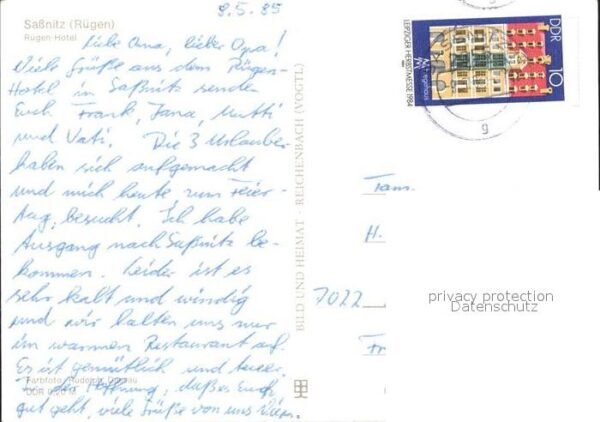 Saßnitz (Rügen)
Rügen-Hotel
9.5.85
Liebe Oma, lieber Opa!
Viele Grüße aus dem Rügen-
Hotel in Saßnitz sende
Euch Frank, Jana, Mutti
und Vati. Die 3 Urlauber
haben sich aufgemacht
und mich heute zum Feier-
tag besucht. Ich habe
Ausgang nach Saßnitz be-
kommen. Leider ist es
sehr kalt und windig
und wir halten uns nur
im warmen Restaurant auf.
Es ist gemütlich und teuer.
In der Hoffnung, daß es Euch
gut geht, viele Grüße von uns
Farbfoto: Rudolph,
DDR 0,20 M
BILD UND HEIMAT · REICHENBACH (VOGTL)
DDR
10
LEIPZIGER HERBSTMESSE 1984
Fam.
H.
7022
Fr
privacy protection
Datenschutz